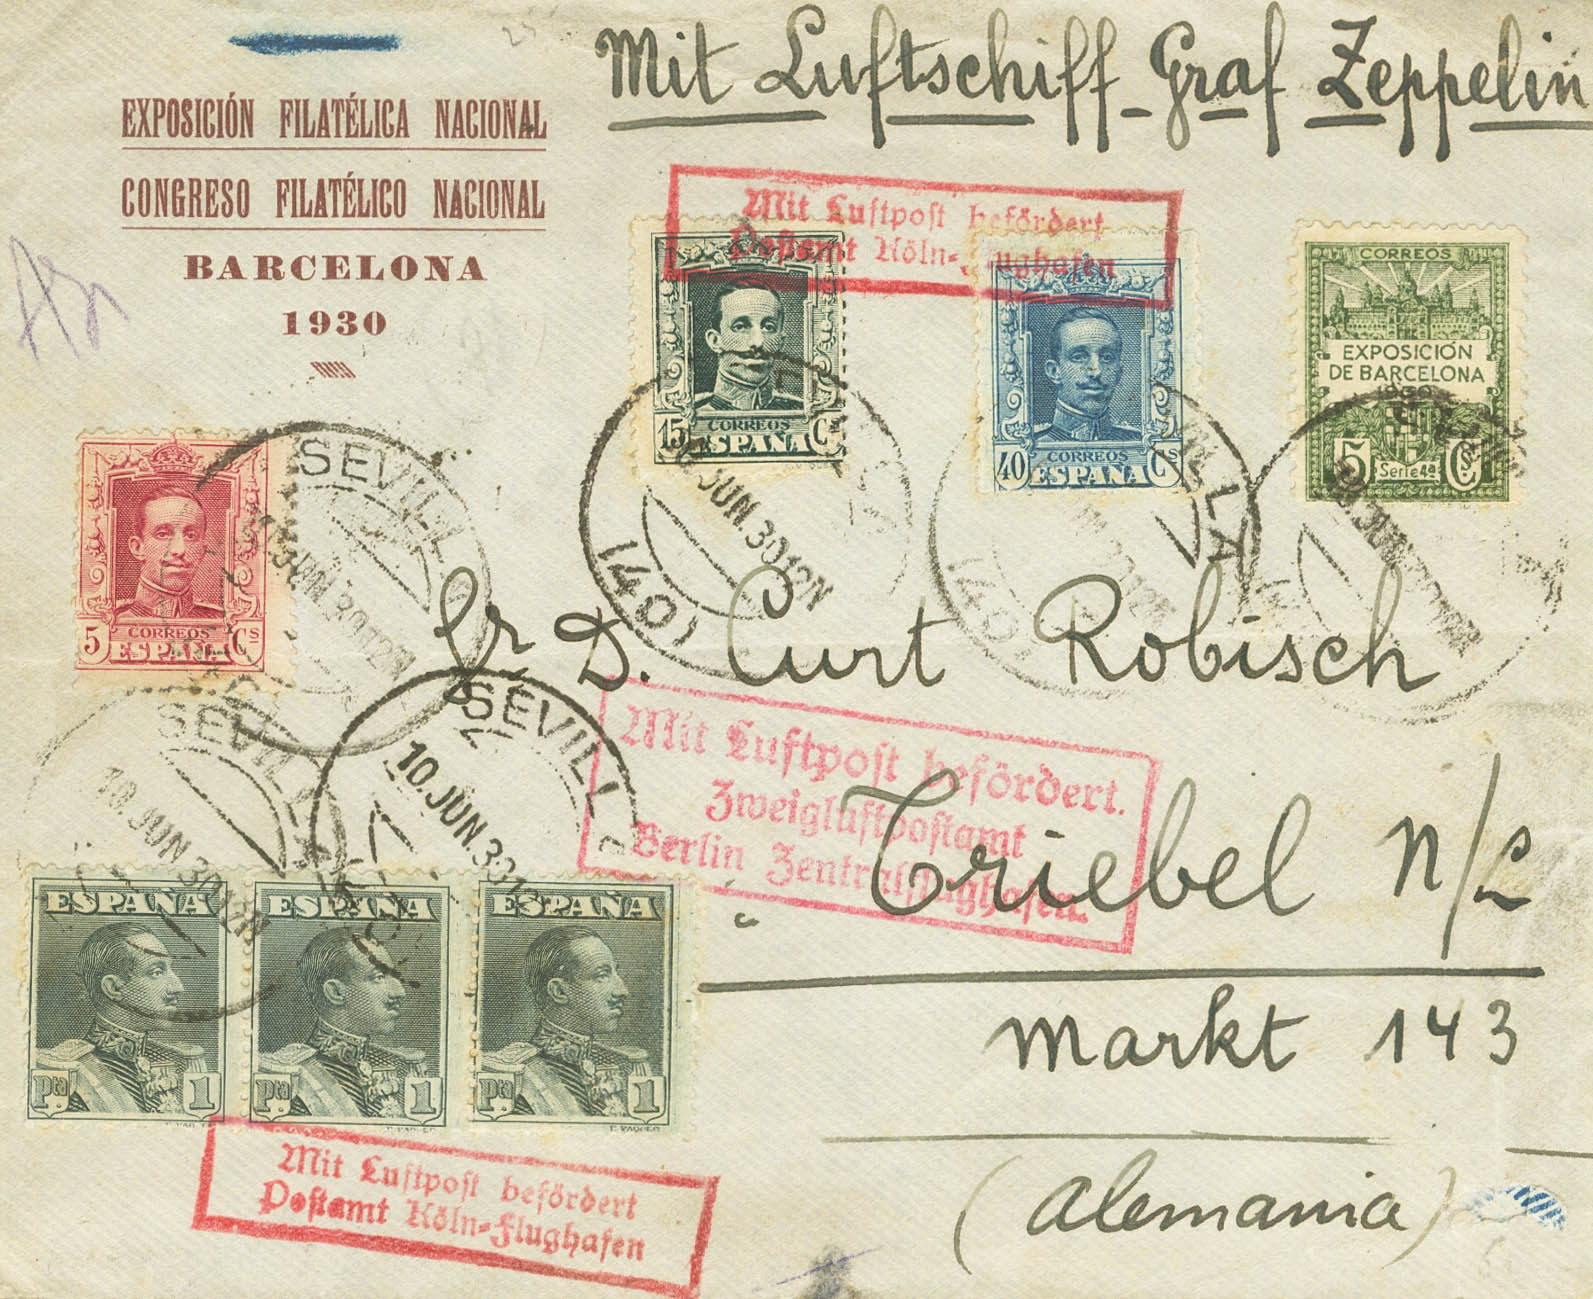 Mit Luftschiff Graf Zeppelin
EXPOSICIÓN FILATÉLICA NACIONAL
CONGRESO FILATÉLICO NACIONAL
BARCELONA
1930
Mit Luftpost befördert
Postamt Köln-Flughafen
15 CORREOS Cs
ESPAÑA
40 CORREOS Cs
ESPAÑA
CORREOS
EXPOSICIÓN
DE BARCELONA
1930
5 Serie 4ª Cs
5 CORREOS Cs
ESPAÑA
SEVILLA
JUN.30 12N
(140)
SEVILLA
10.JUN.30
SEVILLA
10.JUN.30 12N
Sr D. Curt Robisch
Mit Luftpost befördert.
Zweigluftpostamt
Berlin Zentralflughafen.
Triebel N/L
Markt 143
(Alemania)
ESPAÑA ESPAÑA ESPAÑA
Pta 1 Pta 1 Pta 1
Mit Luftpost befördert
Postamt Köln-Flughafen